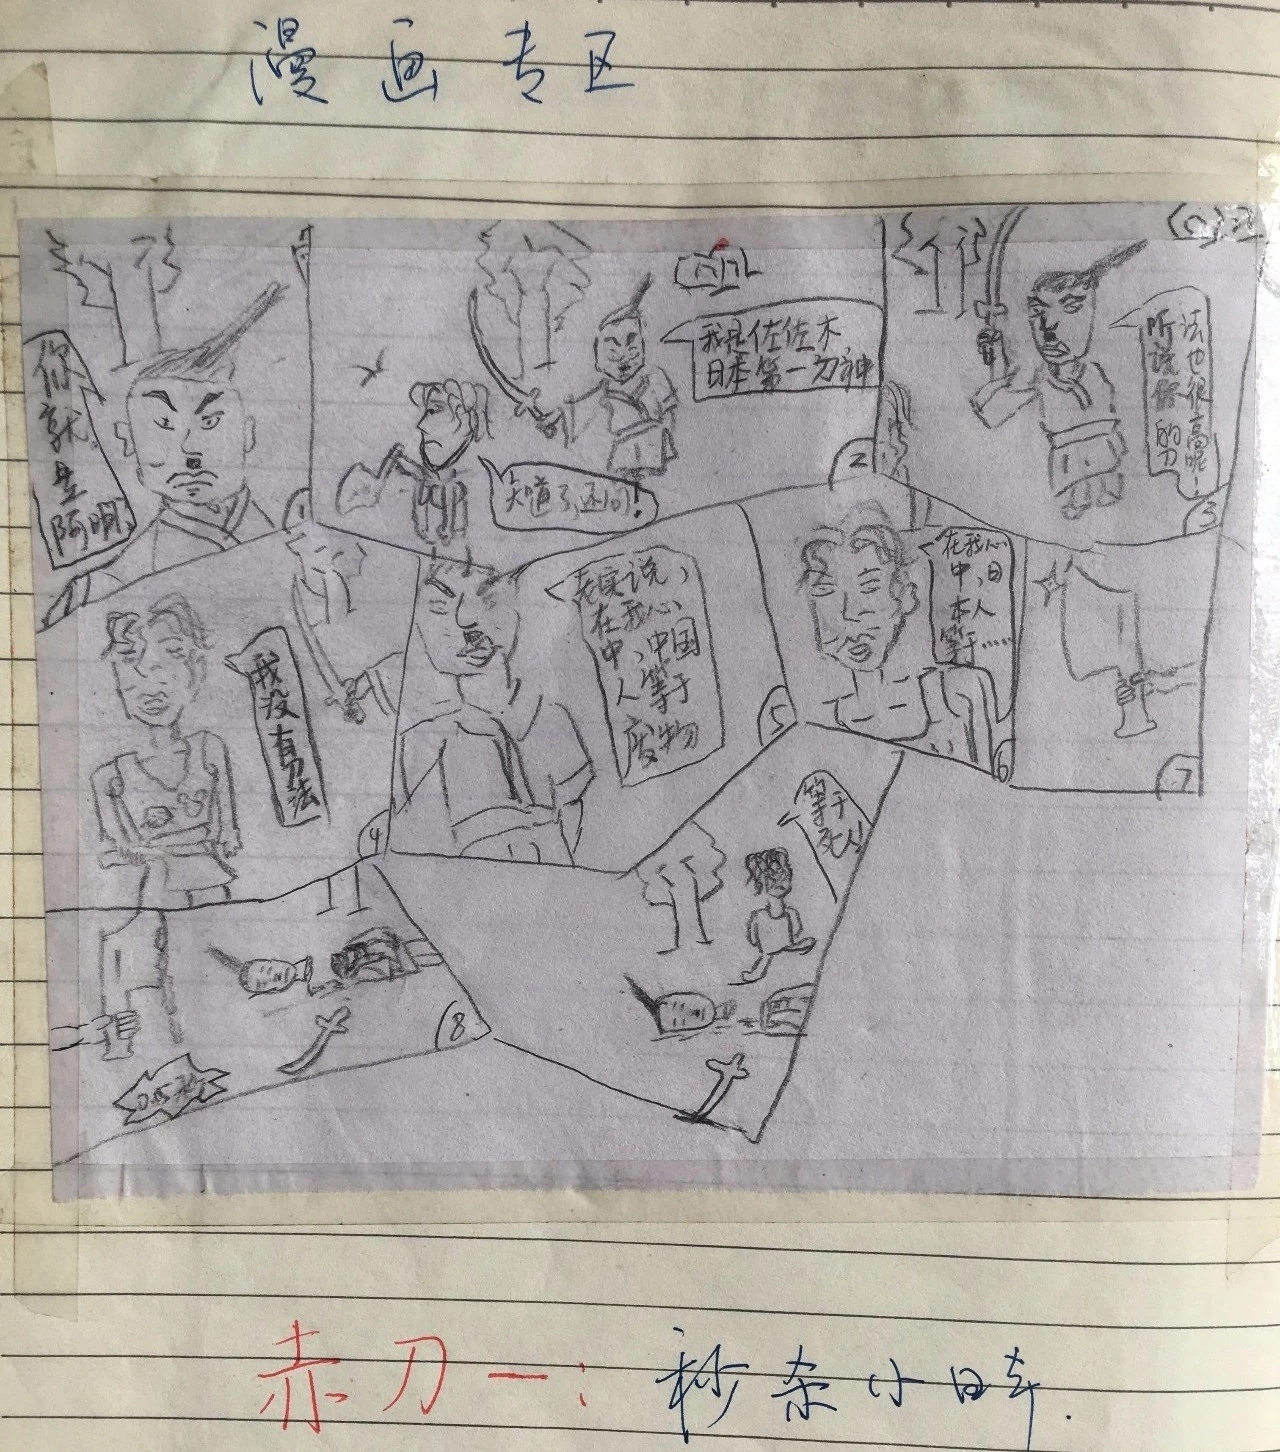 漫画专区
你
就
是
阿明
1
我是佐佐木,
日本第一刀神
知道了,还问!
2
所说你的刀
法也很高呢!
3
我没有刀法
4
老实说,
在我心
中,中国
人等于
废物
5
在我心
中,日
本人
等于……
6
7
0.05秒
8
等于
死人!
赤刀一:秒杀小日本.